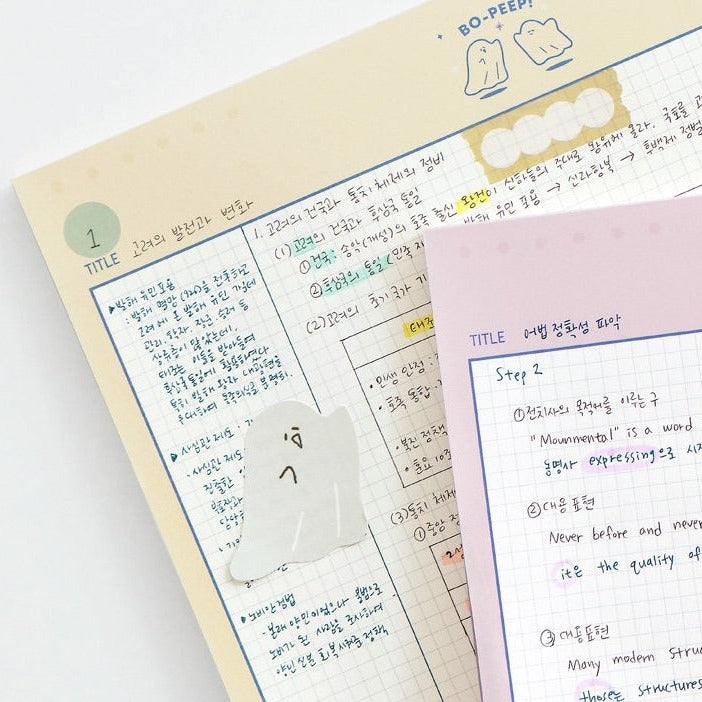 BO-PEEP!
1
TITLE 고려의 발전과 변화
▶발해 유민 포용
: 발해 멸망 (926)을 전후하고
고려에 온 발해 유민 가운데
관리, 학자, 장군, 승려 등
상류층이 많았는데,
태조는 이들을 받아들여
후삼국 통일에 활용하였다
특히 발해 왕자 대광현을
우대하여 동족의식을 분명히.
▶사심관 제도 :
- 사심관 제도
▶노비안검법
- 본래 양민이었으나 불법으로
노비가 된 사람을 조사하여
양인 신분 회복 시켜준 정책
1. 고려의 건국과 통치 체제의 정비
(1) 고려의 건국과 후삼국 통일
①건국: 송악(개성)의 호족 출신 왕건이 신하들의 추대로 왕위에 올라. 국호를 고
②후삼국의 통일(민족 발해 유민 포용 → 신라항복 → 후백제 정벌
(2) 고려의 초기 국가 기
태조
• 민생 안정 :
• 호족 통합 :
• 북진 정책
• 훈요 10조
(3) 통치 체제
① 중앙 정
2성
TITLE 어법 정확성 파악
Step 2
①전치사의 목적어를 이루는 구
"Mounmental" is a word
동명사 expressing으로 시
②대응 표현
Never before and never
it은 the quality of
③대응표현
Many modern struc
those는 structures